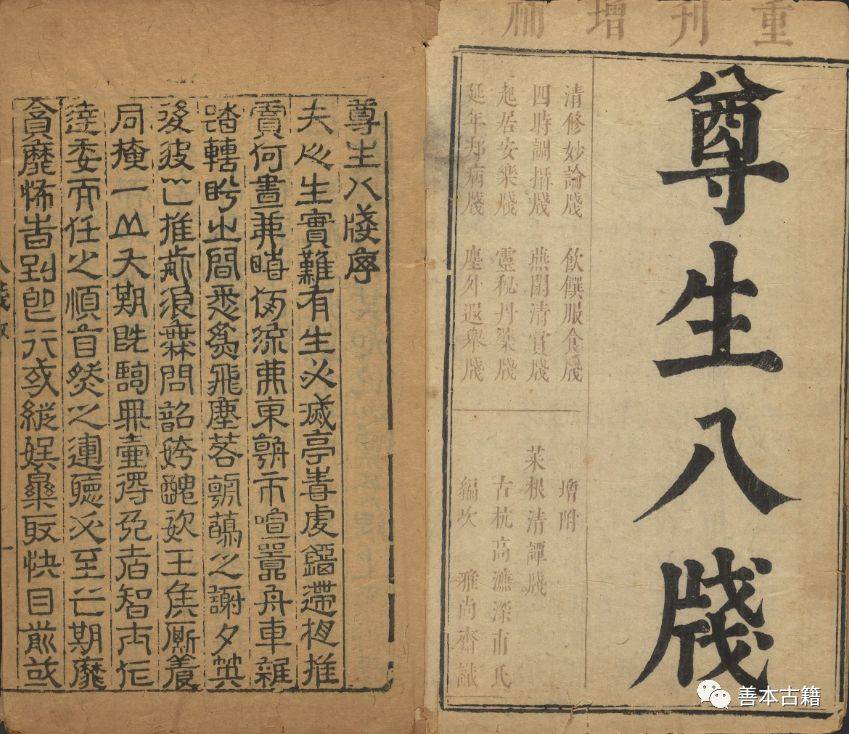 重刊增補
尊生八牋
清修妙論牋 飲饌服食牋
四時調攝牋 燕閒清賞牋
起居安樂牋 靈秘丹藥牋
延年却病牋 塵外遐舉牋
增附
菜根清譚牋
古杭高濂深甫氏
編次 雅尚齋識
尊生八牋序
夫人生實難有生必滅亭毒虔鐂遞相推
何晝弗晦何流弗東朝市喧囂舟車雜
踏轉盻之間悉為飛塵若朝菌之謝夕英
後波之推前浪無問韶姱醜 王侯厮養
同掩一丘大期既臨 得免者智士作
達委而任之順自然之運聽必至之期靡
貪靡怖 到即行或縱娛樂取快目前或
八牋叙
一
善本古籍